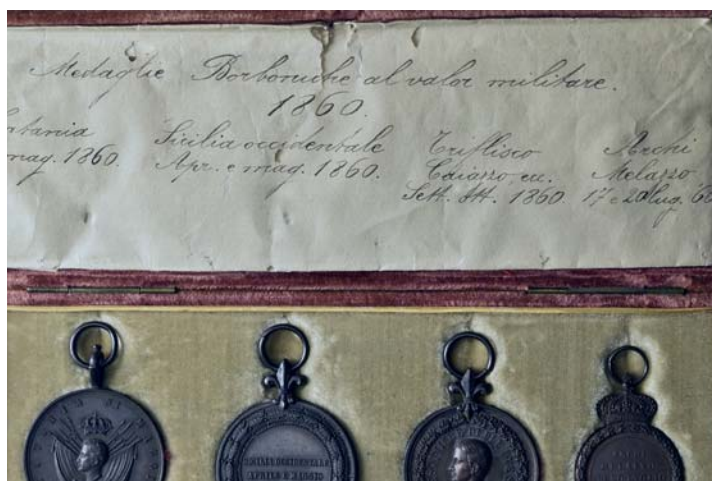 Medaglie Borboniche al valor militare.
1860.
ntania
mag. 1860.
Sicilia occidentale
Apr. e mag. 1860.
Triflisco
Caiazzo, ecc.
Sett. Ott. 1860.
Archi
Melazzo
17 e 20 lug. 60
SICILIA OCCIDENTALE
APRILE E MAGGIO